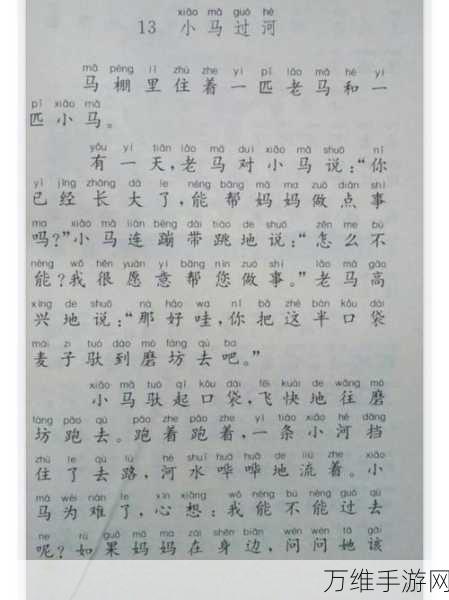 xiǎo mǎ guò hé
13 小马过河
mǎ péng lǐ zhù zhe yì pǐ lǎo mǎ hé yì
马棚里住着一匹老马和一
pǐ xiǎo mǎ
匹小马。
yǒu yì tiān lǎo mǎ duì xiǎo mǎ shuō nǐ
有一天，老马对小马说：“你
yǐ jīng zhǎng dà le néng bāng mā ma zuò diǎn shì
已经长大了，能帮妈妈做点事
ma xiǎo mǎ lián bèng dài tiào de shuō zěn me bù
吗？”小马连蹦带跳地说：“怎么不
néng wǒ hěn yuàn yì bāng nín zuò shì lǎo mǎ gāo
能？我很愿意帮您做事。”老马高
xìng de shuō nà hǎo wa nǐ bǎ zhè bàn kǒu dài
兴地说：“那好哇，你把这半口袋
mài zi tuó dào mò fáng qù ba
麦子驮到磨坊去吧。”
xiǎo mǎ tuó qǐ kǒu dài fēi kuài de wǎng mò
小马驮起口袋，飞快地往磨
fáng pǎo qù pǎo zhe pǎo zhe yì tiáo xiǎo hé dǎng
坊跑去。跑着跑着，一条小河挡
zhù le qù lù hé shuǐ huā huā de liú zhe xiǎo
住了去路，河水哗哗地流着。小
mǎ wéi nán le xīn xiǎng wǒ néng bù néng guò qù
马为难了，心想：我能不能过去
ne rú guǒ mā ma zài shēn biān wèn wen tā gāi
呢？如果妈妈在身边，问问她该
万维手游网